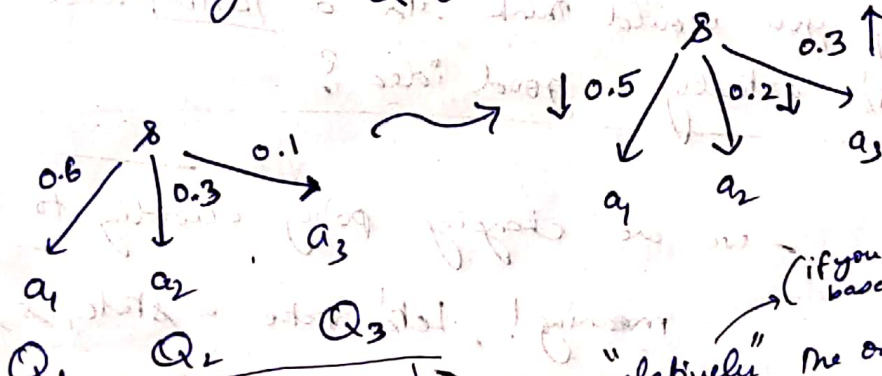 s
0.6 0.3 0.1
a1 a2 a3
Q1 Q2 Q3
s
↓ 0.5 0.2 ↓ 0.3 ↑
a1 a2 a3
(if you
"relatively" the